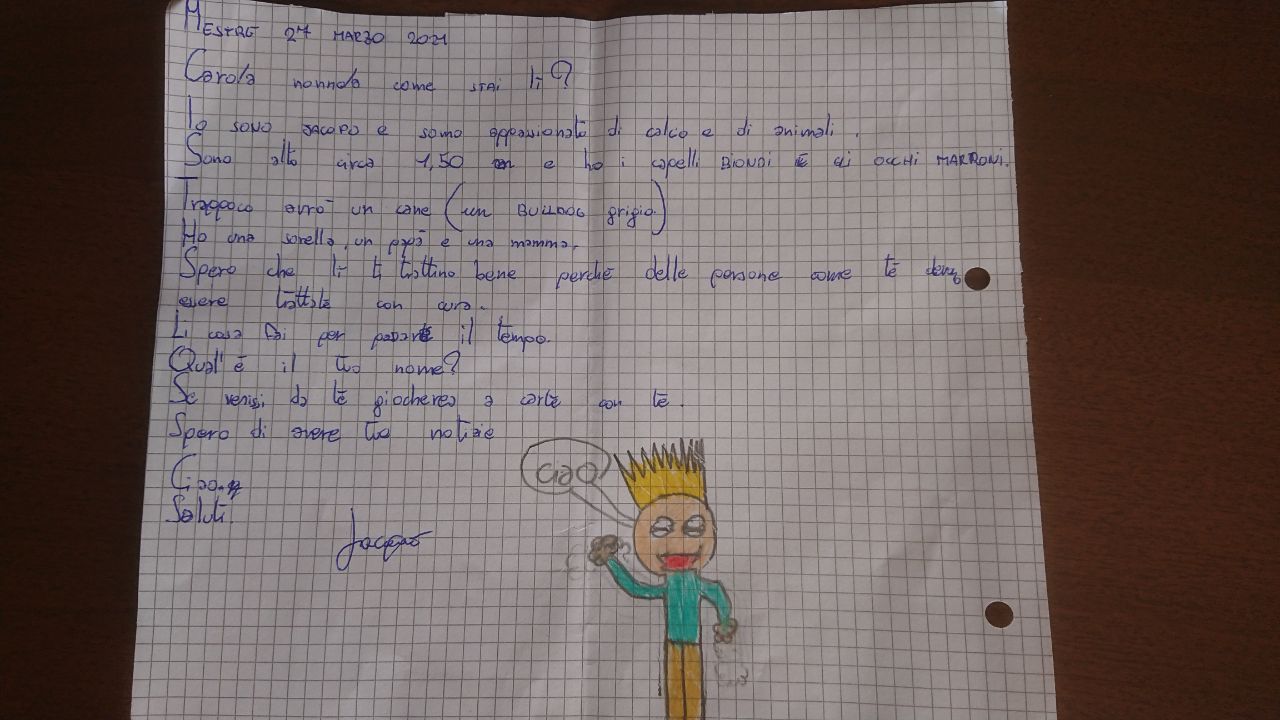 MESTRE 27 MARZO 2021
Carola nonnola come STAI lì?
Io SONO JACOPO e sono appassionato di calco e di animali.
Sono alto circa 1,50 m e ho i capelli BIONDI E gli OCCHI MARRONI.
Trappoco avrò un cane (un BULLDOG grigio)
Ho una sorella, un papà e una mamma.
Spero che lì ti trattino bene perché delle persone come te devono
essere trattate con cura.
Lì cosa fai per passare il tempo.
Qual'è il tuo nome?
Se venissi da te giocherei a carte con te.
Spero di avere tue notizie
Ciao
Saluti.
Jacopo
CIAO